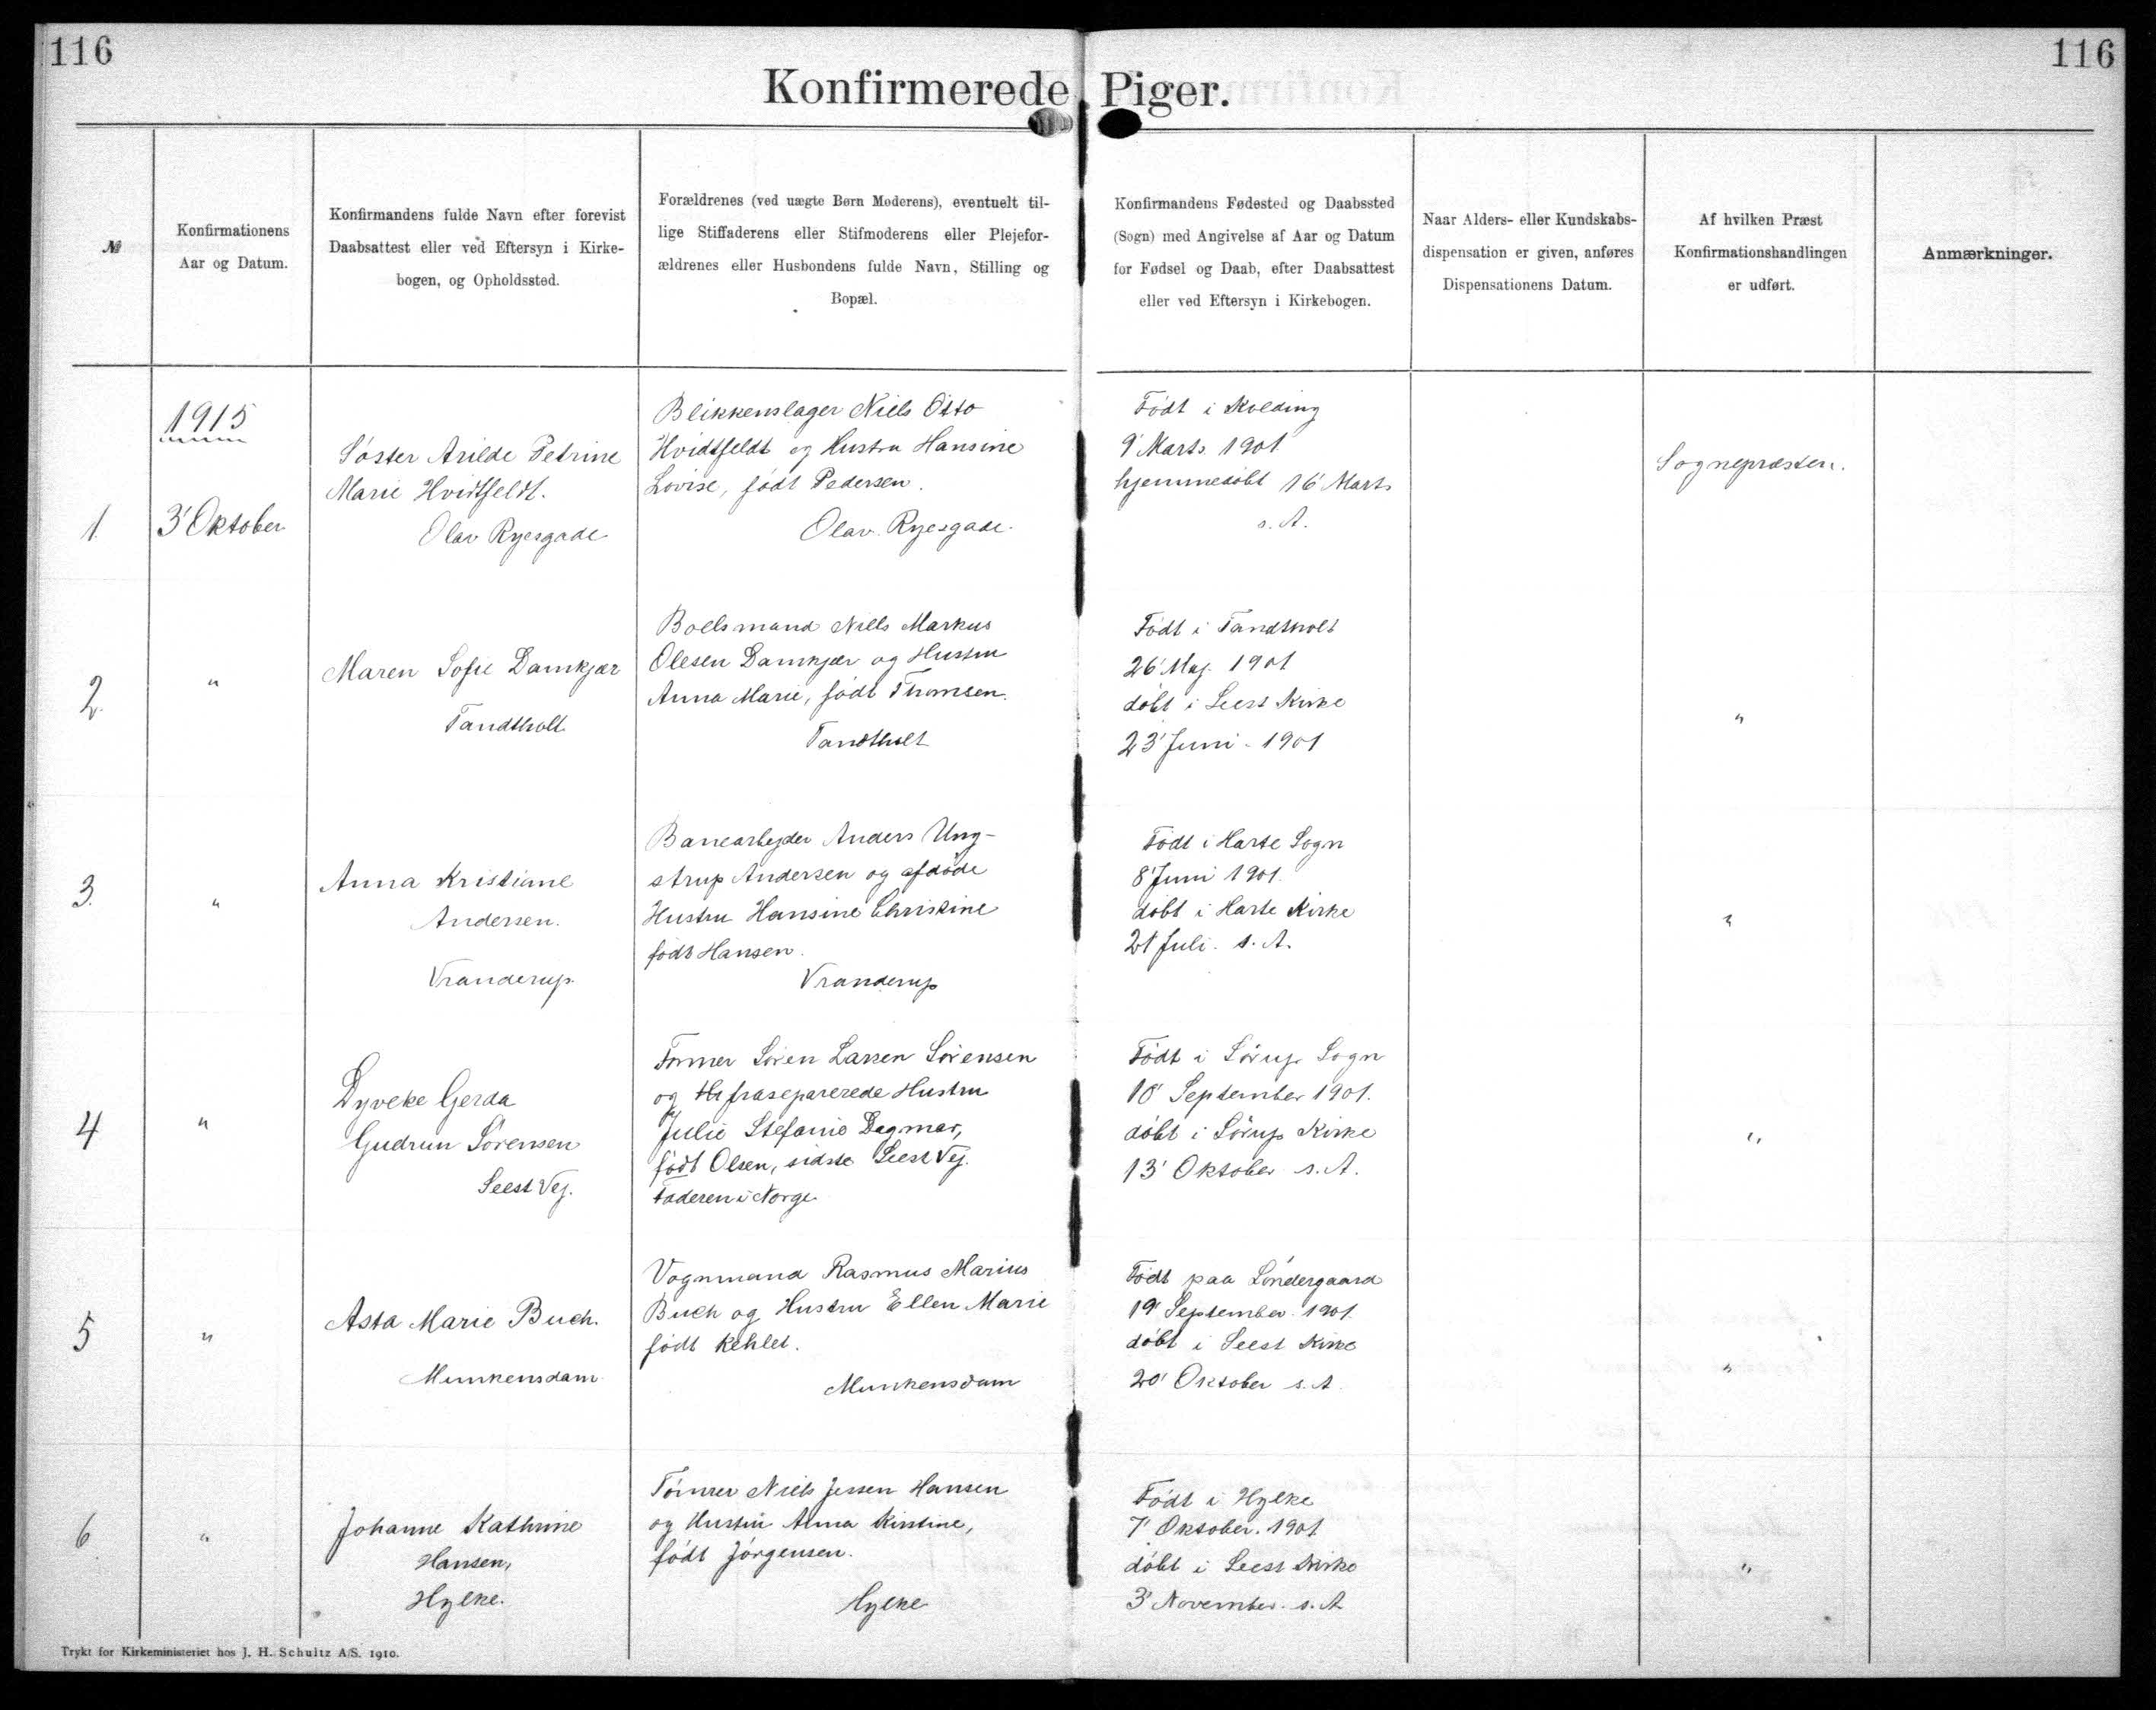 116
116
Konfirmerede Piger.
№
Konfirmationens
Aar og Datum.
Konfirmandens fulde Navn efter forevist
Daabsattest eller ved Eftersyn i Kirke-
bogen, og Opholdssted.
Forældrenes (ved uægte Børn Moderens), eventuelt til-
lige Stiffaderens eller Stifmoderens eller Plejefor-
ældrenes eller Husbondens fulde Navn, Stilling og
Bopæl.
Konfirmandens Fødested og Daabssted
(Sogn) med Angivelse af Aar og Datum
for Fødsel og Daab, efter Daabsattest
eller ved Eftersyn i Kirkebogen.
Naar Alders- eller Kundskabs-
dispensation er given, anføres
Dispensationens Datum.
Af hvilken Præst
Konfirmationshandlingen
er udført.
Anmærkninger.
1.
1915
3' Oktober
Søster Arilde Petrine
Marie Hvidtfeldt.
Olav Ryesgade
Blikkenslager Niels Otto
Hvidtfeldt og Hustru Hansine
Lovise, født Pedersen.
Olav Ryesgade.
Født i Kolding
9' Marts 1901
hjemmedøbt 16' Marts
s. A.
Sognepræsten.
2.
"
Maren Sofie Damkjær
Tandtholt
Boelsmand Niels Markus
Olesen Damkjær og Hustru
Anna Marie, født Thomsen.
Tandtholt
Født i Tandtholt
26' Maj 1901
døbt i Seest Kirke
23' Juni 1901
"
3.
"
Anna Kristiane
Andersen.
Vranderup.
Banearbejder Anders Ung-
strup Andersen og afdøde
Hustru Hansine Christine
født Hansen.
Vranderup
Født i Harte Sogn
8' Juni 1901.
døbt i Harte Kirke
21' Juli s. A.
"
4
"
Dyveke Gerda
Gudrun Sørensen
Seest Vej.
Former Søren Larsen Sørensen
og fraseparerede Hustru
Julie Stefanie Dagmar,
født Olsen, sidste Seest Vej.
Faderen i Norge
Født i Sørup Sogn
18' September 1901.
døbt i Sørup Kirke
13' Oktober s. A.
"
5
"
Asta Marie Buch.
Munkensdam
Vognmand Rasmus Marius
Buch og Hustru Ellen Marie
født Kehlet.
Munkensdam
Født paa Søndergaard
19' September 1901.
døbt i Seest Kirke
20' Oktober s. A
"
6
"
Johanne Kathrine
Hansen,
Hylke.
Tømrer Niels Jessen Hansen
og Hustru Anna Kirstine,
født Jørgensen.
Hylke
Født i Hylke
7' Oktober. 1901
døbt i Seest Kirke
3' November s. A
"
Trykt for Kirkeministeriet hos J. H. Schultz A/S. 1910.